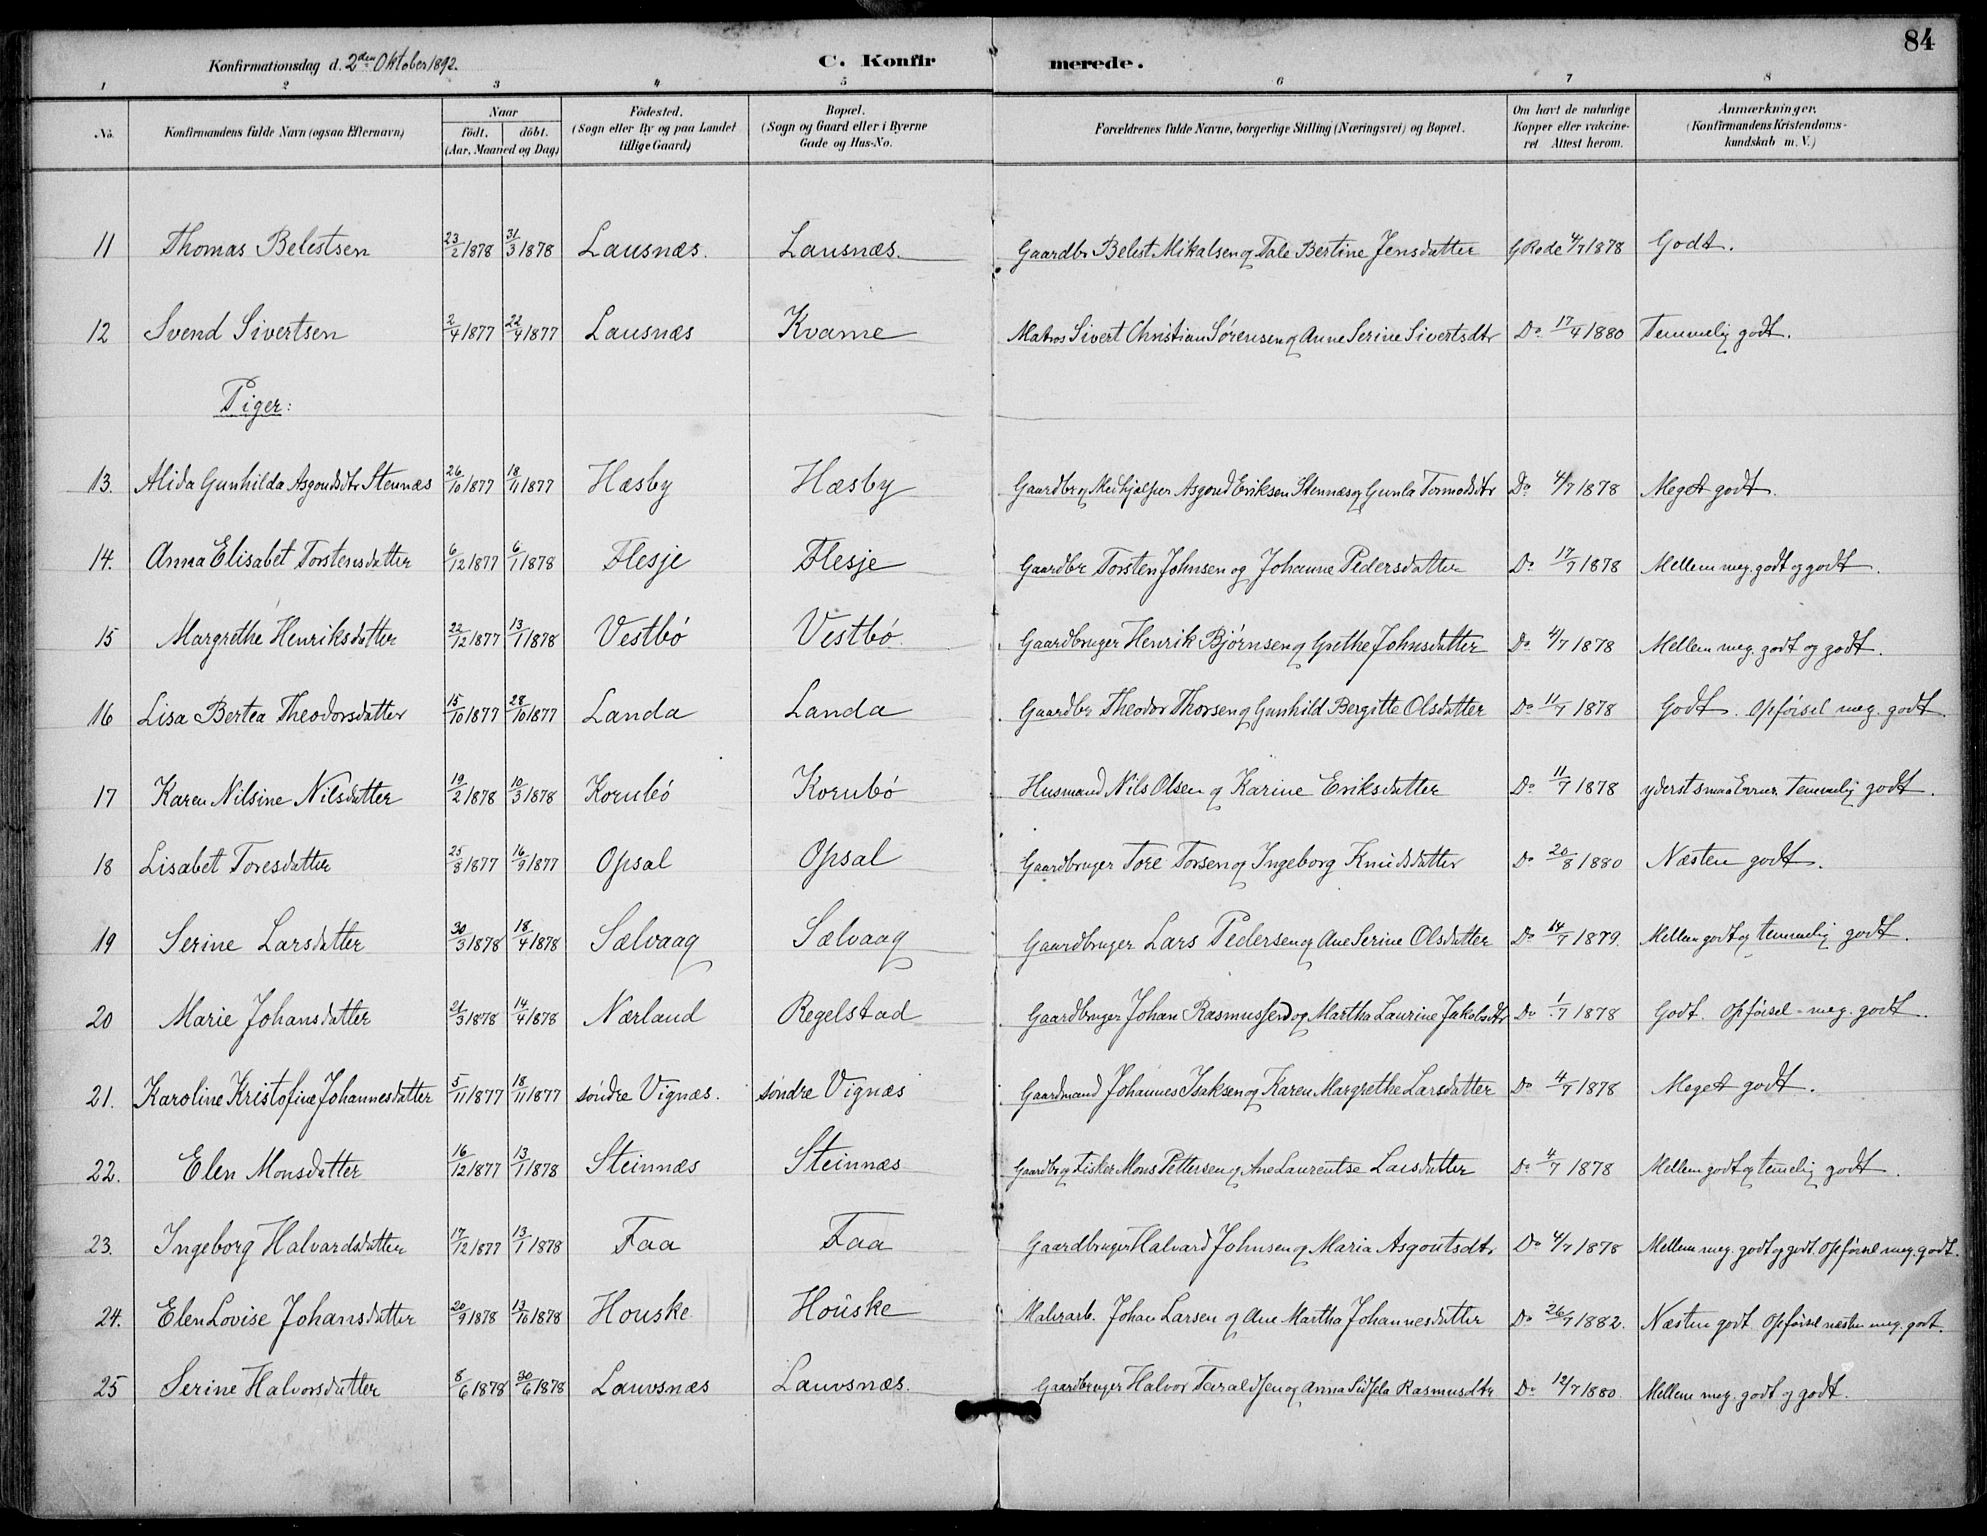 84
Konfirmationsdag d. 2den Oktober 1892. C. Konfirmerede.
1 2 3 4 5 6 7 8
No. Konfirmandens fulde Navn (ogsaa Efternavn) Naar født, døbt. (Aar, Maaned og Dag) Fødested. (Sogn eller By og paa Landet tillige Gaard) Bopæl. (Sogn og Gaard eller i Byerne Gade og Hus-No. Forældrenes fulde Navne, borgerlige Stilling (Næringsvei) og Bopæl. Om havt de naturlige Kopper eller vakcineret. Attest herom. Anmærkninger. (Konfirmandens Kristendomskundskab m. V.)
11 Thomas Belestsen 23/2 1878 31/3 1878 Lausnæs. Lausnæs. Gaardbr Belest Mikalsen og Tale Bertine Jensdatter G Rode 4/7 1878 Godt.
12 Svend Sivertsen 2/4 1877 22/4 1877 Lausnæs Kvame Matros Sivert Christian Sørensen og Anne Serine Sivertsdtr Do 17/4 1880 Temmelig godt.
Piger:
13. Alida Gunhilda Asgoudsdtr Stennæs 26/10 1877 18/11 1877 Hæsby Hæsby Gaardbr og Medhjælper Asgoud Eriksen Stennæs og Gunla Tormodsdtr Do 4/7 1878 Meget godt.
14. Anna Elisabet Torstensdatter 6/12 1877 6/1 1878 Flesje Flesje Gaardbr Torsten Johnsen og Johanne Pedersdatter Do 17/7 1878 Mellem meg. godt og godt.
15 Margrethe Henriksdatter 22/12 1877 13/1 1878 Vestbø Vestbø Gaardbruger Henrik Bjørnsen og Grethe Johnsdatter Do 4/7 1878 Mellem meg. godt og godt.
16 Lisa Bertea Theodorsdatter 15/10 1877 28/10 1877 Landa Landa Gaardbr Theodor Thorsen og Gunhild Bergitte Olsdatter Do 11/7 1878 Godt. Opførsel meg. godt.
17 Karen Nilsine Nilsdatter 19/2 1878 10/3 1878 Kornbø Kornbø Husmand Nils Olsen og Karine Eriksdatter Do 11/7 1878 yderst smaa Evner. Temmelig godt.
18 Lisabet Toresdatter 25/8 1877 16/9 1877 Opsal Opsal Gaardbruger Tore Torsen og Ingeborg Knudsdatter Do 20/8 1880 Næsten godt.
19 Serine Larsdatter 30/3 1878 18/4 1878 Sælvaag Sælvaag Gaardbruger Lars Pedersen og Ane Serine Olsdatter Do 14/7 1879. Mellem godt og temmelig godt.
20 Marie Johansdatter 21/3 1878 14/4 1878 Nærland Regelstad Gaardbruger Johan Rasmussen og Martha Laurine Jakobsdtr Do 1/7 1878 Godt. Opførsel - meg. godt.
21. Karoline Kristofine Johannesdatter 5/11 1877 18/11 1877 søndre Vignæs. søndre Vignæs Gaardmand Johannes Isaksen og Karen Margrethe Larsdatter Do 4/7 1878 Meget godt.
22. Elen Monsdatter 16/12 1877 13/1 1878 Steinnæs Steinnæs Gaardbr og Fisker Mons Pettersen og Ane Laurentse Larsdatter Do 4/7 1878 Mellem godt og temelig godt.
23. Ingeborg Halvardsdatter 17/12 1877 13/1 1878 Faa Faa Gaardbruger Halvard Johnsen og Maria Asgoutsdtr Do 4/7 1878 Mellem meg. godt og godt. Opførsel meg. godt.
24. Elen Lovise Johansdatter 20/9 1878 13/10 1878 Houske Houske Malerarb. Johan Larsen og Ane Martha Johannesdatter Do 26/7 1882. Næsten godt. Opførsel næsten meg. godt.
25 Serine Halvorsdatter 8/6 1878 30/6 1878 Lauvsnæs Lauvsnæs. Gaardbruger Halvor Taraldsen og Anna Sidsela Rasmusdtr Do 12/7 1880. Mellem meg. godt og godt.